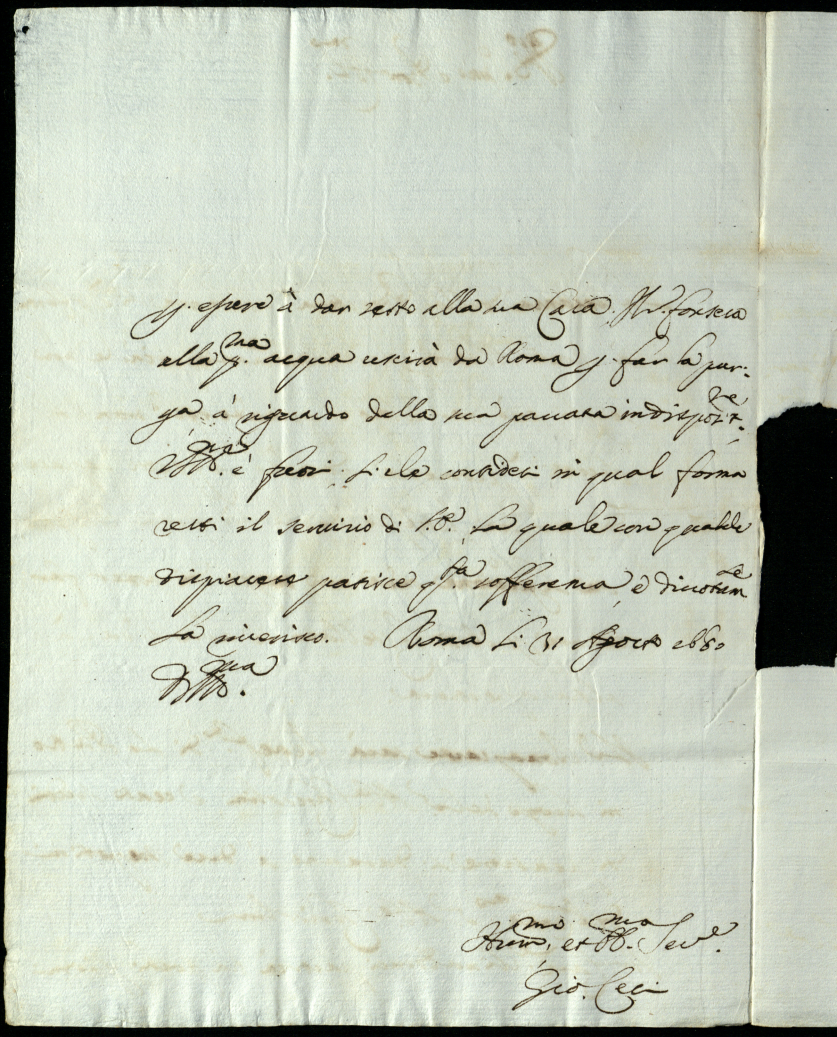 p. essere à dar resto alla sua Casa. Il S.r fonseca
alla p.ma acqua uscirà da Roma p. far la pur:
ga à riguardo della sua passata indispoz.ne
è fuori. Si che consideri in qual forma
resti il servizio di S.A. La quale con qualche
dispiacere patisce q.sta sofferenza, e divotam.te
La riverisco. Roma li 31 Agosto 1680
Hum.mo et Obb.mo Ser.e
Gio. Ceci